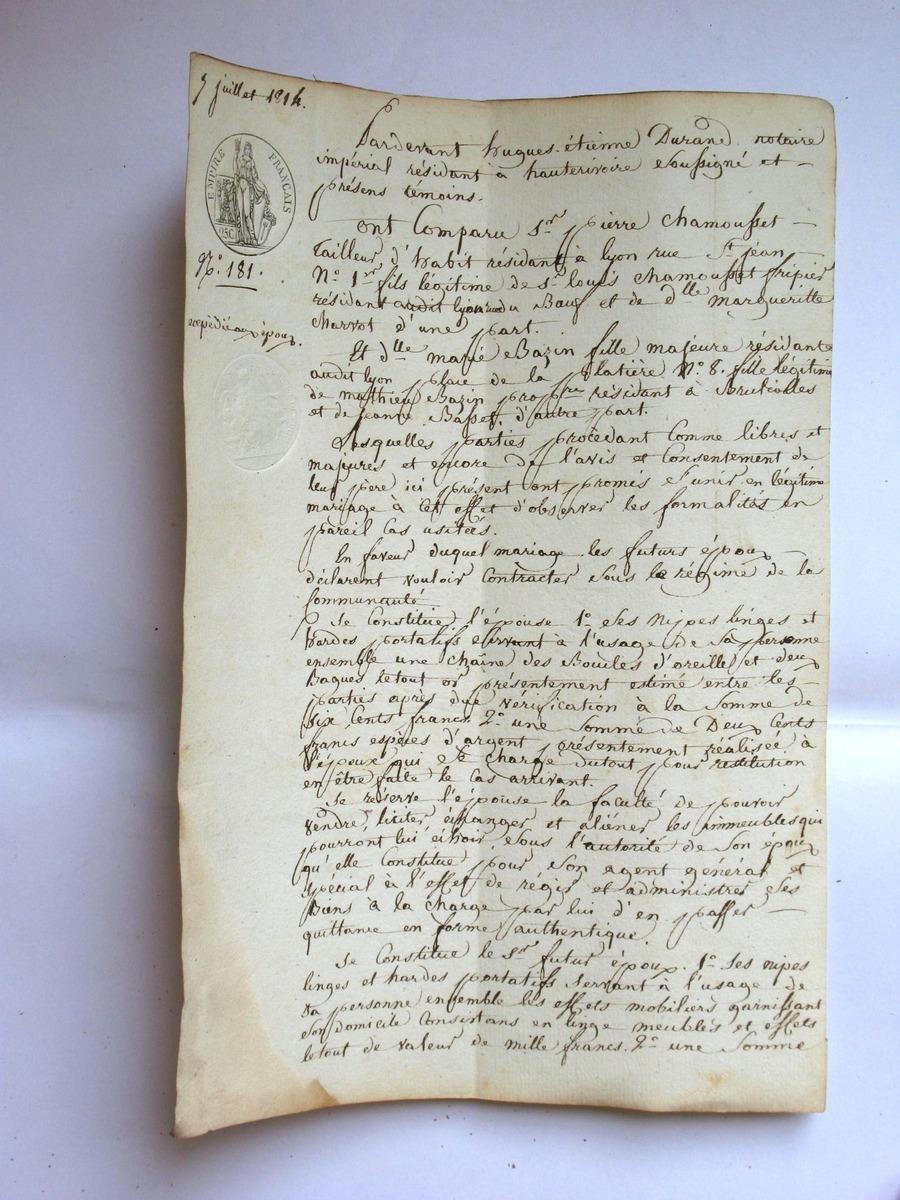 7 juillet 1814.
EMPIRE FRANÇAIS
95C
N.º 181.
expédié aux époux.
Pardevant hugues-étienne Durand notaire
impérial résidant à hauterivoire soussigné et
présens témoins.
ont Comparu S.r pierre Chamousset
tailleur d'habit résidant à lyon rue S.t jean
N.º 1.er fils légitime de S.r louis Chamousset fripier
résidant audit lyon rue du Bœuf et de d.lle margueritte
Charvot d'une part.
Et d.lle marie Bazin fille majeure résidante
audit lyon place de la platière N.º 8. fille légitime
de mathieu Bazin prop.re résidant à Brulioles
et de jeanne Basset, d'autre part.
Lesquelles parties procédant Comme libres et
majeures et encore de l'avis et Consentement de
leur père ici présent ont promis s'unir en légitime
mariage à cet effet d'observer les formalités en
pareil cas usitées.
En faveur duquel mariage les futurs époux
déclarent vouloir Contracter sous le régime de la
Communauté
Se Constitue l'épouse 1.º ses nipes linges et
hardes portatifs servant à l'usage de Sa personne
ensemble une chaîne des Boucles d'oreille et deux
Bagues le tout or présentement estimé entre les
parties après due vérification à la Somme de
Six Cents francs. 2.º une Somme de Deux Cents
francs espèces d'argent présentement réalisée à
l'époux qui se charge du tout pour restitution
en être faite le cas arrivant.
Se réserve l'épouse la faculté de pouvoir
vendre, liciter échanger et aliéner les immeubles qui
pourront lui échoir, sous l'autorité de Son époux
qu'elle Constitue pour Son agent général et
spécial à l'effet de régir et administrer Ses
Biens à la charge par lui d'en passer
quittance en forme authentique.
Se Constitue le S.r futur époux. 1.º Ses nipes
linges et hardes portatifs servant à l'usage de
Sa personne ensemble les effets mobiliers garnissant
Son domicile Consistans en linge meubles et effets
le tout de valeur de mille francs. 2.º une Somme